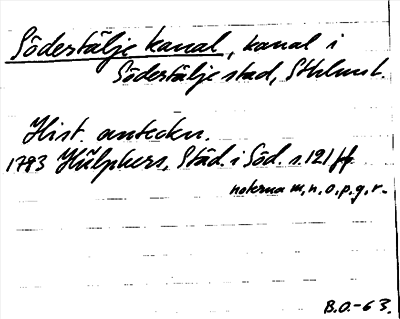 Södertälje kanal, kanal i
Södertälje stad, Sthlms l.
Hist. anteckn.
1793 Hülphers, Städ. i Söd. s. 121 ff.
noterna m, n, o, p, q, r.
B.O.-63.